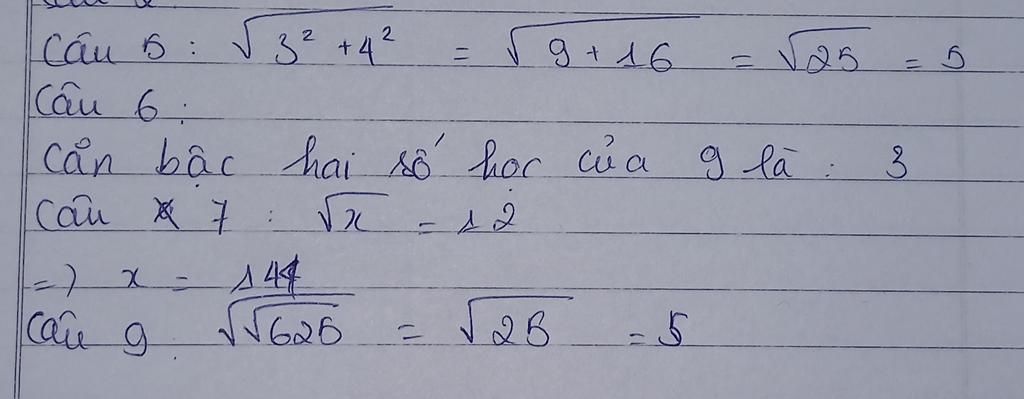 Câu 5 : √(3² + 4²) = √(9 + 16) = √25 = 5
Câu 6 :
Căn bậc hai số học của 9 là : 3
Câu 7 : √x = 12
=) x = 144
Câu 9 : √√625 = √25 = 5